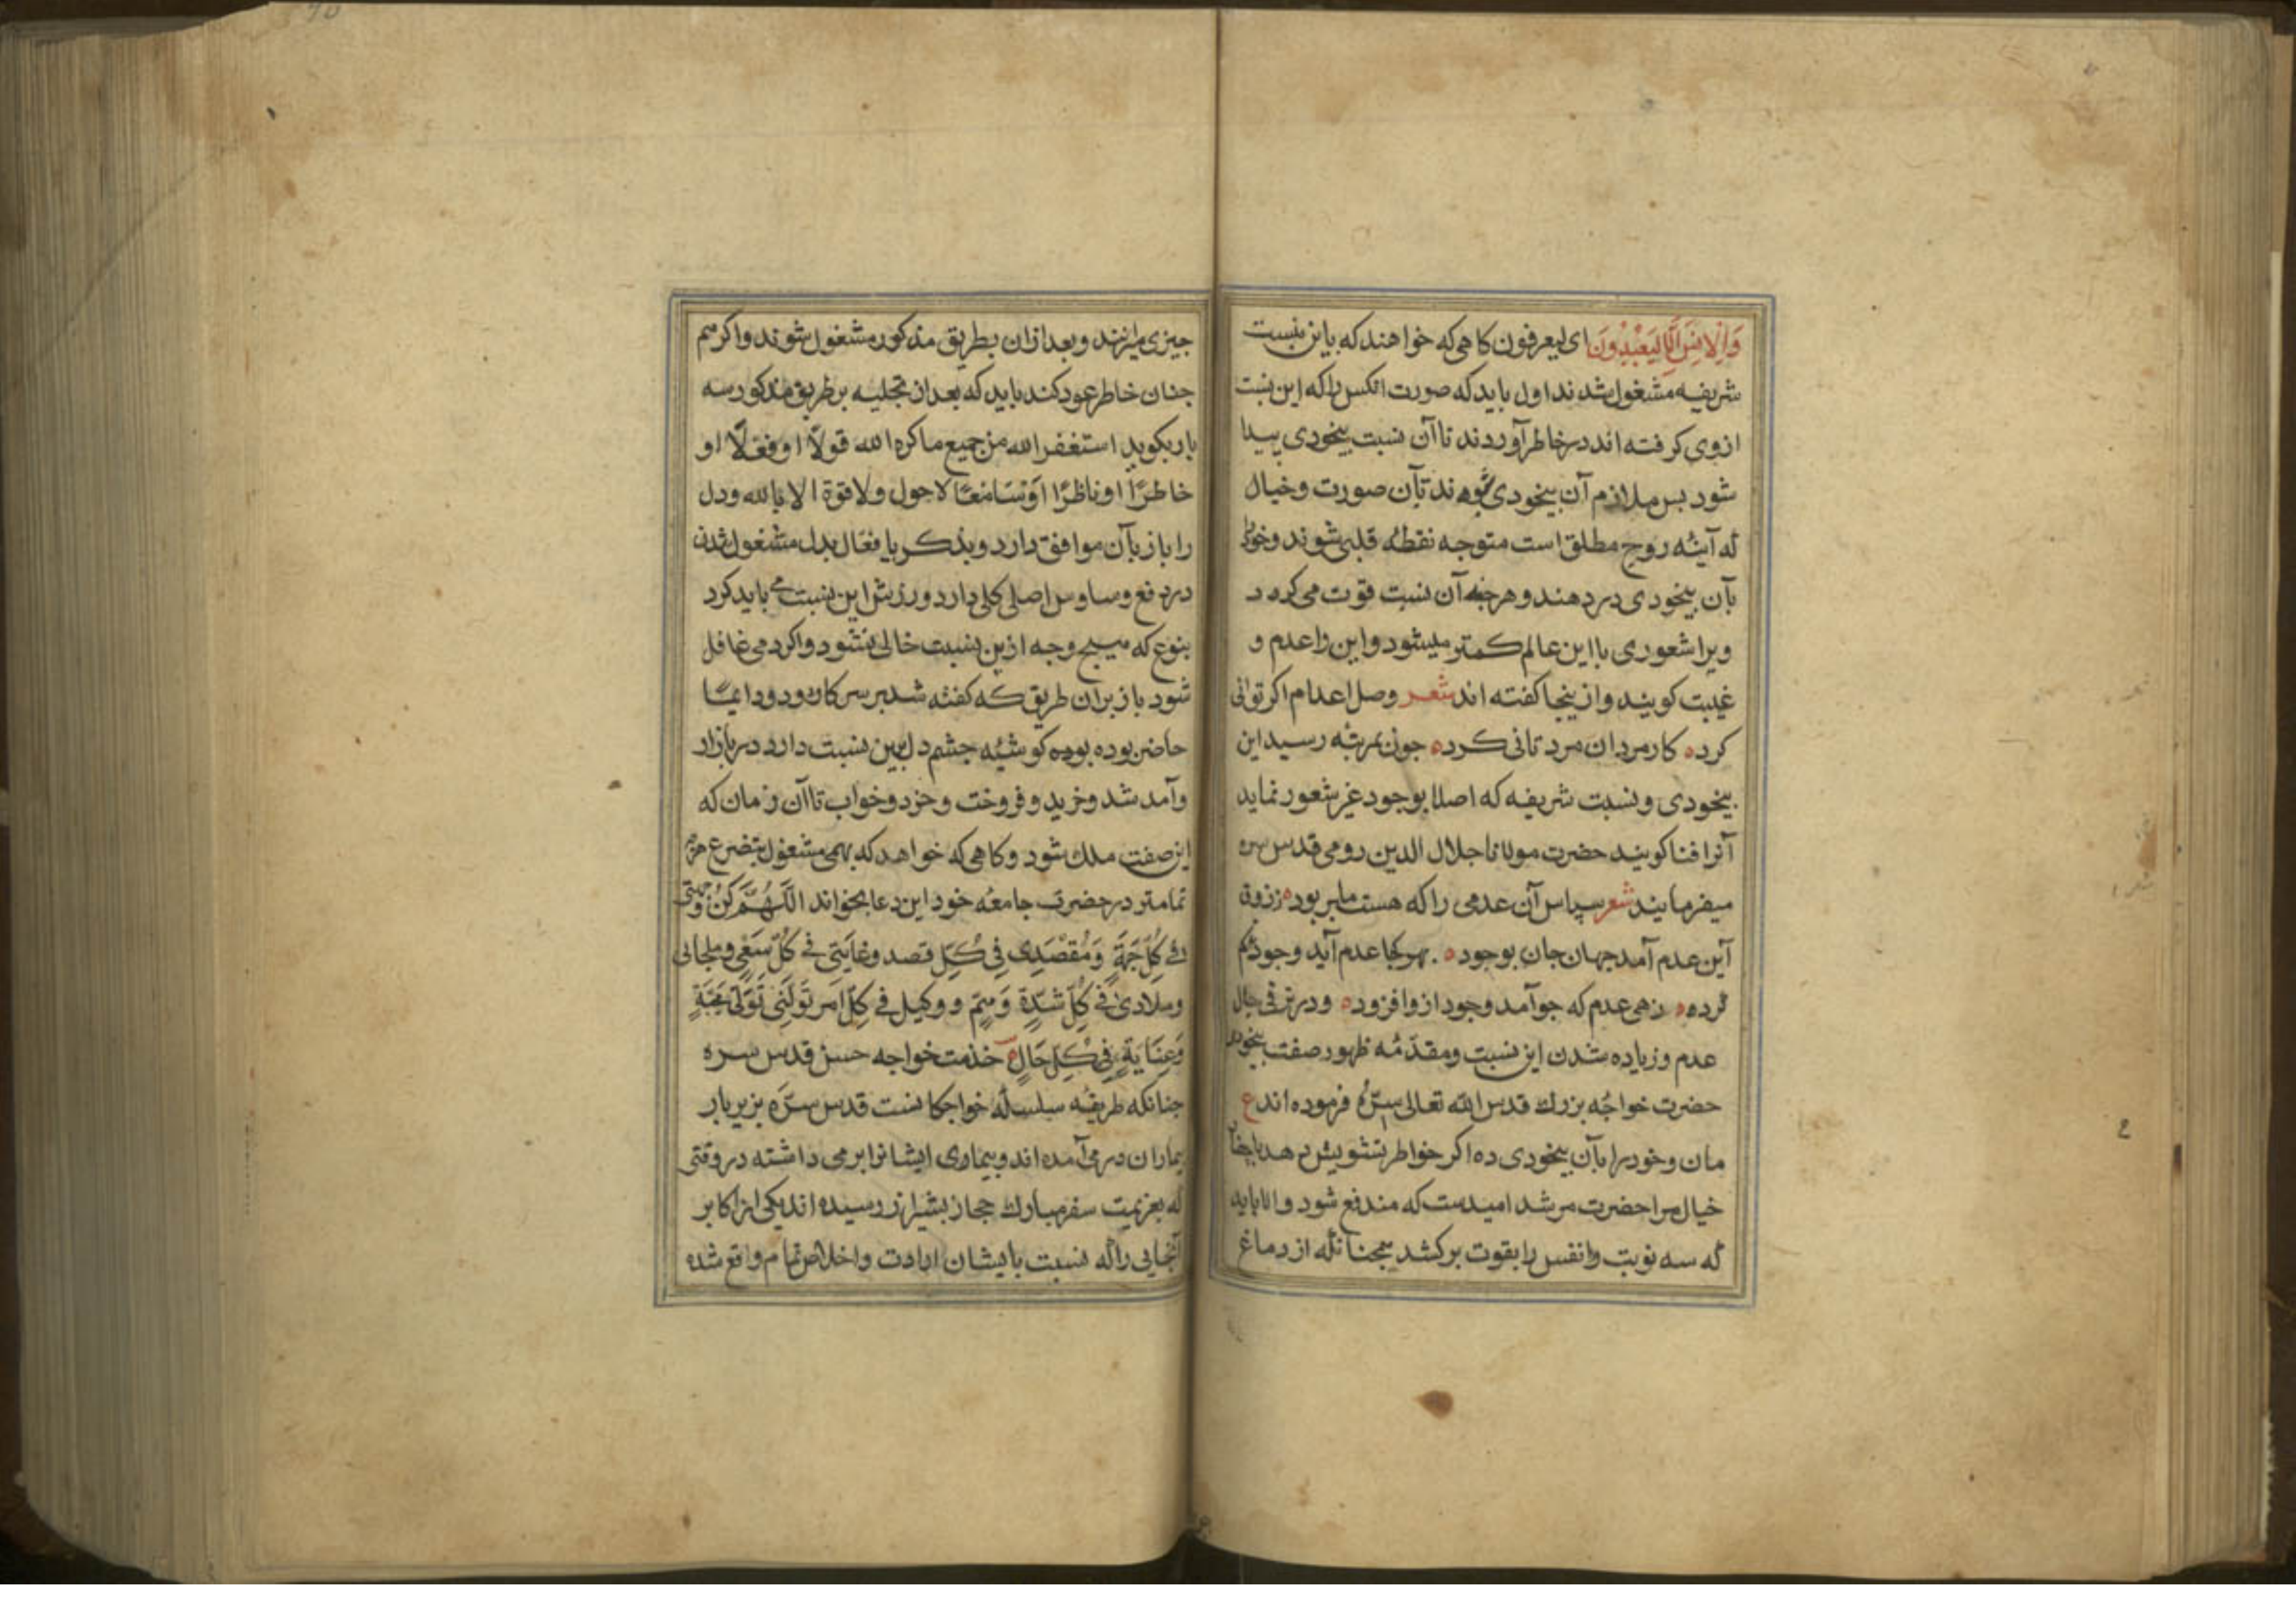 وَالْاِنْسَ اِلَّا لِيَعْبُدُونَ ای لیعرفون کاهی که خواهند که باین نسبت
شریفه مشغول شدند اول باید که صورت انکس را که این نسبت
ازوی کرفته اند در خاطر آوردند تا آن نسبت بیخودی پیدا
شود بس ملازم آن بیخودی بآن صورت و خیال
که آینهٔ روح مطلق است متوجه نقطهٔ قلبی شوند و خود را
بآن بیخودی در دهند و هرچند آن نسبت قوت می کرد
ویرا شعوری با این عالم کمتر میشود و این را عدم و
غیبت کویند و ازینجا کفته اند شعر وصل اعدام اکر توانی
کرد ه کار مردان مرد تانی کرد ه جون بمرتبه رسید این
بیخودی و نسبت شریفه که اصلا بوجود غیر شعور نماید
آنرا فنا کویند حضرت مولانا جلال الدین رومی قدس سره
میفرمایند شعر سپاس آن عدمی را که هست ما بربود ه
آین عدم آمد جهان جان بوجود ه بهر کجا عدم آید وجود کم
کردد ه زهی عدم که جو آمد وجود ازو افزود ه و در ترقی حال
عدم و زیاده شدن این نسبت و مقدّمهٔ ظهور صفت بیخودی
حضرت خواجهٔ بزرك قدس الله تعالی سرّهُ فرموده اند ع
مان و خود را بآن بیخودی ده اکر خواطر تشویش دهد
خیال مرا حضرت مرشد امیدست که مندفع شود و الا باید
که سه نوبت وانفس را بقوت برکشد بمجنانکه از دماغ
جیزی میرانند و بعد ازان بطریق مذکور مشغول شوند و اکر هم
جنان خاطر عود کند باید که بعد از تجلیه بر طریق مذکور سه
بار بکوید استغفر الله من جمیع ما کره الله قولًا او فعلًا او
خاطرًا او ناظرًا او سامعًا لا حول ولا قوة الا بالله و دل
را باز بآن موافق دارد و بذکر یا فعّال بدل مشغول شدن
در دفع وساوس اصلی کلی دارد ورزش این نسبت می باید کرد
بنوع که هیچ وجه ازین نسبت خالی نشود و اکر دمی غافل
شود باز بران طریق که کفته شد بر سر کار رود و دایمًا
حاضر بوده بوده کوشهٔ جشم دل باین نسبت دارد در بازار
وآمد شد و خرید و فروخت و خرد و خواب تا آن زمان که
این صفت ملك شود و کاهی که خواهد که بهمی مشغول بتضرع هرجه
تمامتر در حضرت جامعهٔ خود این دعا بخواند اللَّهُمَّ كُنْ وِجْهَتِی
فی كُلِّ جِهَةٍ وَمَقْصَدِی فِی كُلِّ قصد وغایتی فی كُلّ سَعْیٍ وملجائی
وملاذی فی كُلِّ شِدَّةٍ وَهِمّ ووكیل فی كلّ امر تولّنی تَوَلّیَ مَحَبَّةٍ
وَعِنَایَةٍ فِی كُلِّ حَالٍ ه خذمت خواجه حسن قدس سره
جنانکه طریقهٔ سلسلهٔ خواجکانست قدس سرّه بزیر بار
بیماران در می آمده اند و بیماری ایشانرا برمی داشته در وقتی
که بعزیمت سفر مبارك حجاز بشیراز رسیده اند یکی از اکابر
آنجایی را که نسبت بایشان ارادت و اخلاص تمام واقع شده